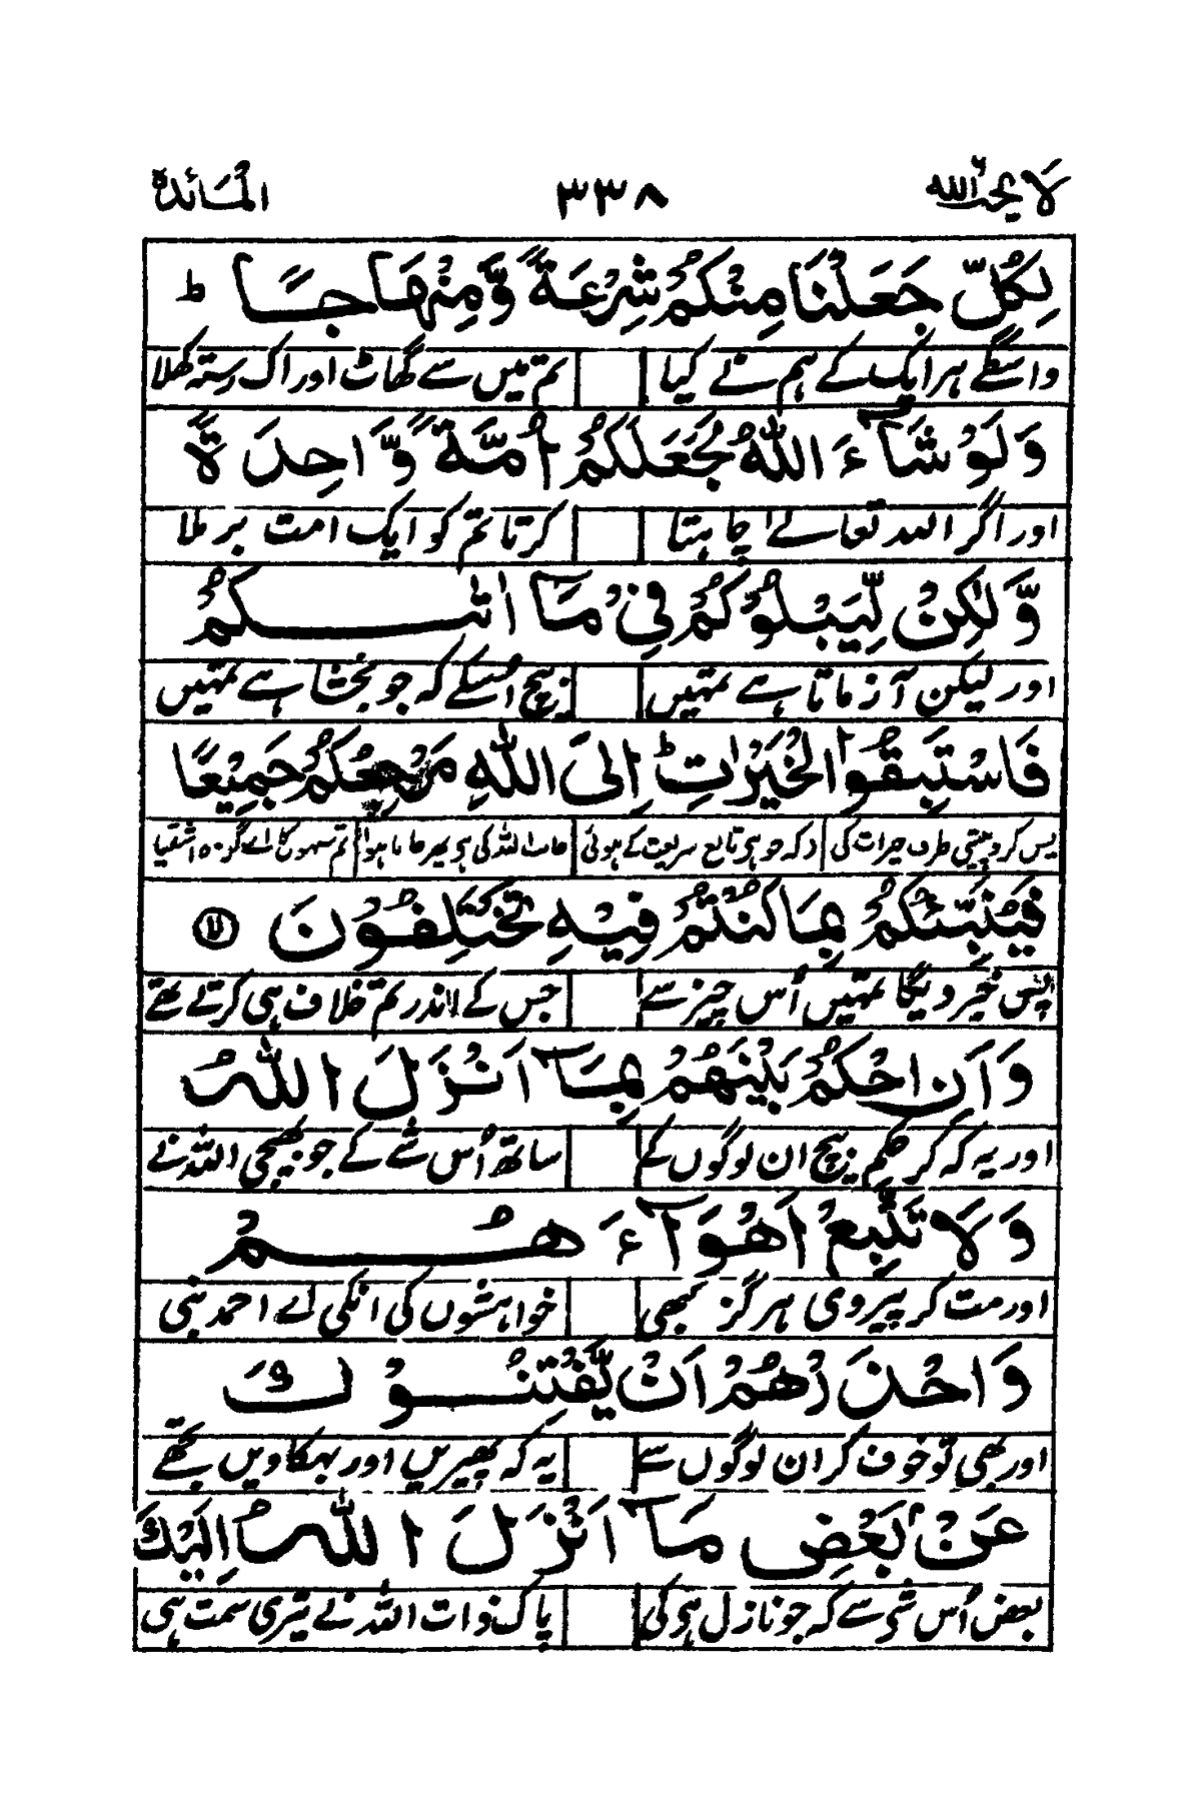 لَا یحب اللہ ۳۳۸ المَائدة
لِكُلٍّ جَعَلْنَا مِنْكُمْ شِرْعَةً وَّمِنْهَاجًا ط
واسطے ہر ایک کے ہم نے کیا تم میں سے گھاٹ اور اک رستہ کھلا
وَلَوْ شَآءَ اللّٰهُ لَجَعَلَكُمْ اُمَّةً وَّاحِدَةً
اور اگر اللہ تعالے چاہتا کرتا تم کو ایک امت برملا
وَّلٰكِنْ لِّيَبْلُوَكُمْ فِيْ مَآ اٰتٰىكُمْ
اور لیکن آزماتا ہے تمہیں بیچ اُسکے کہ جو بخشا ہے تمہیں
فَاسْتَبِقُوا الْخَيْرٰتِ ط اِلَى اللّٰهِ مَرْجِعُكُمْ جَمِيْعًا
پس کرو پیشی طرف خیرات کی کہ جو ہی تابع شریعت کے ہوئی جانب اللہ کی ہی پھر جانا ہوا تم سبھوں کا اے گروہ اشقیا
فَيُنَبِّئُكُمْ بِمَا كُنْتُمْ فِيْهِ تَخْتَلِفُوْنَ
پس خبر دیگا تمہیں اُس چیز سے جس کے اندر تم خلاف ہی کرتے تھے
وَاَنِ احْكُمْ بَيْنَهُمْ بِمَآ اَنْزَلَ اللّٰهُ
اور یہ کہ کر حکم بیچ ان لوگوں کے ساتھ اُس شے کے جو بھیجی اللہ نے
وَلَا تَتَّبِعْ اَهْوَآءَهُمْ
اور مت کر پیروی ہرگز کبھی خواہشوں کی انکی اے احمد نبی
وَاحْذَرْهُمْ اَنْ يَّفْتِنُوْكَ
اور بھی تو خوف کر ان لوگوں سے یہ کہ پھیریں اور بہکاویں تجھے
عَنْۢ بَعْضِ مَآ اَنْزَلَ اللّٰهُ اِلَيْكَ
بعض اُس شی سے کہ جو نازل ہوی کی پاک ذات اللہ نے تیری سمت ہی